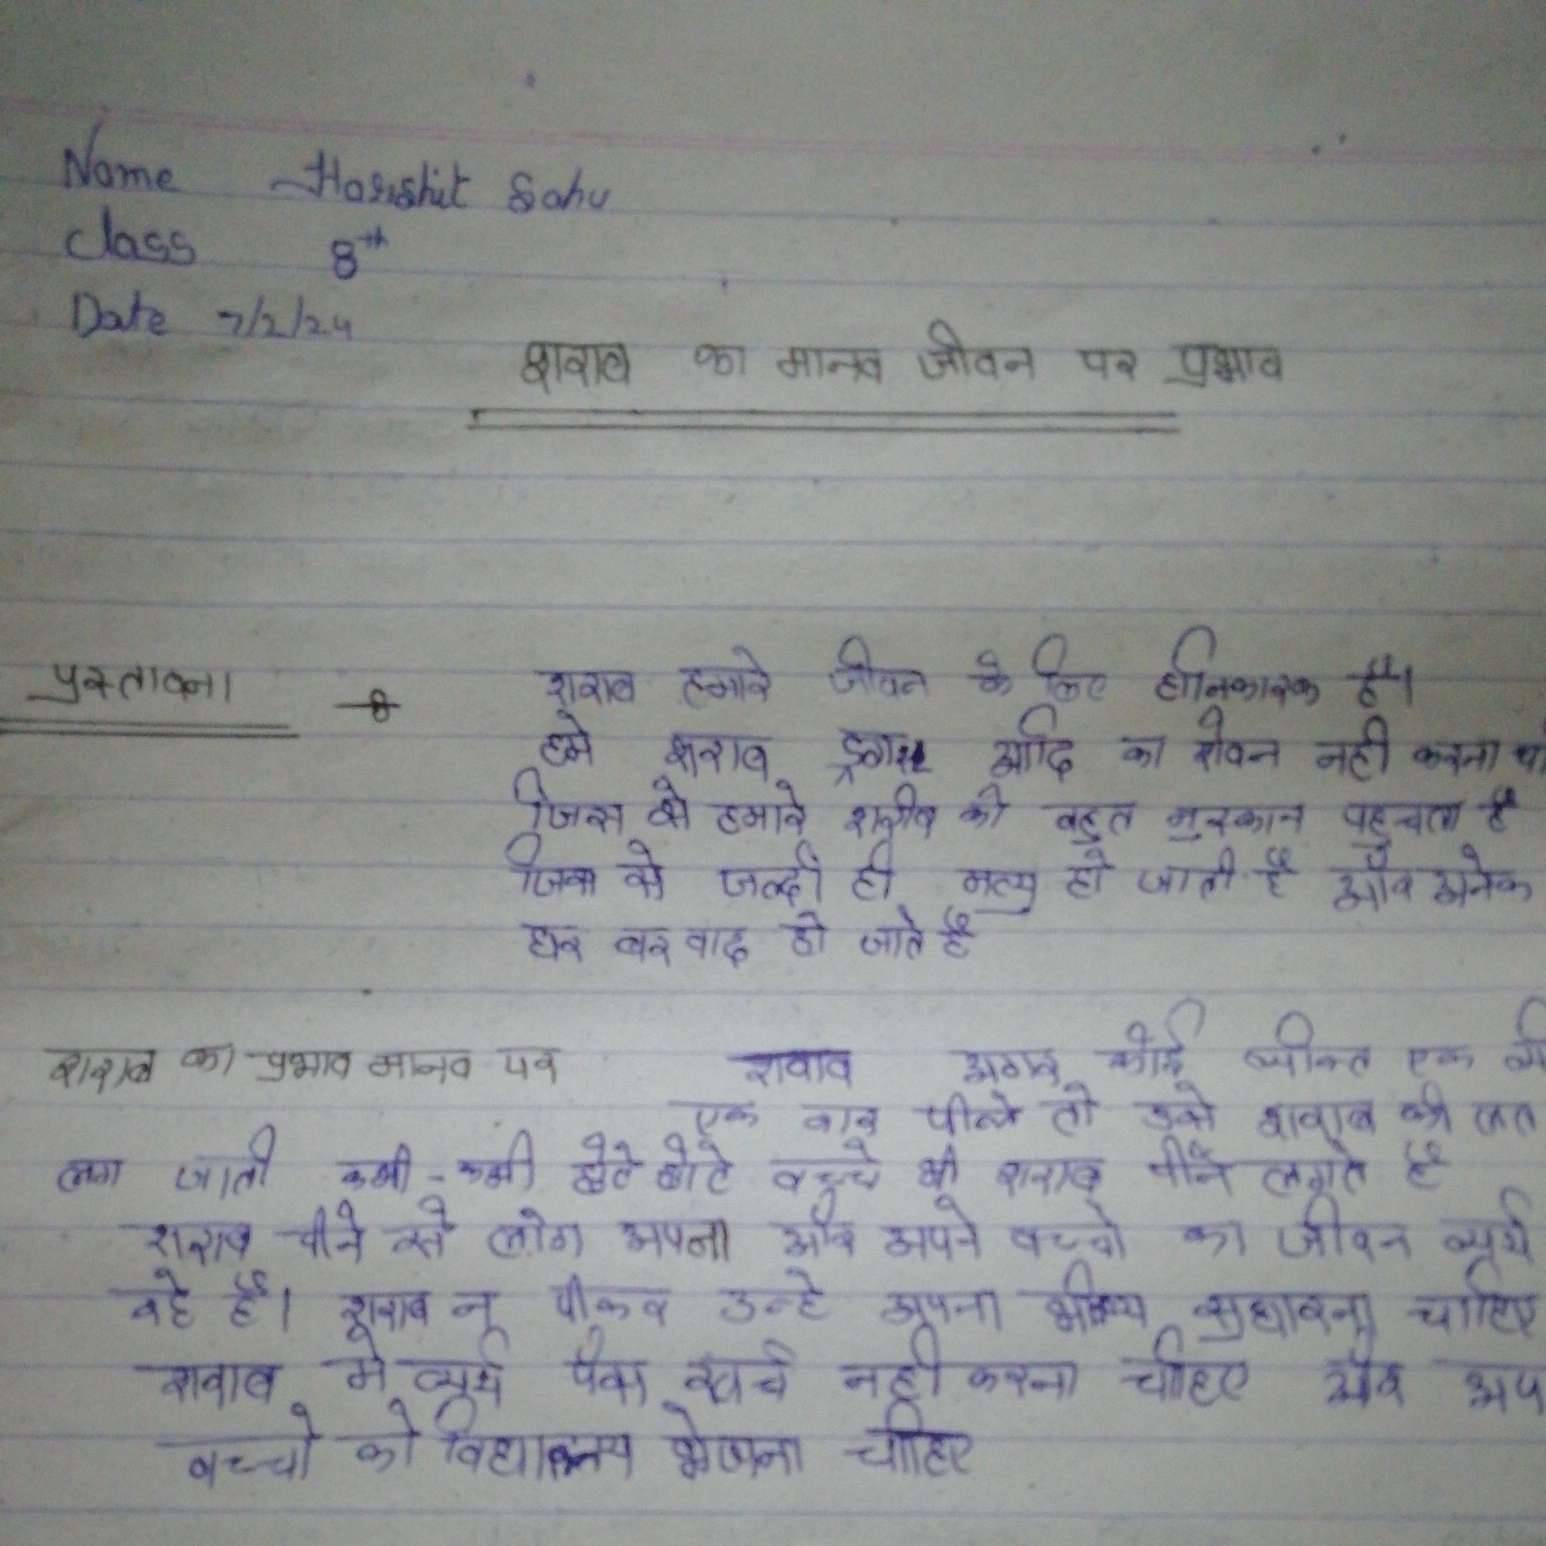 Name Harshit Sahu
Class 8th
Date 7/2/24
शराब का मानव जीवन पर प्रभाव
प्रस्तावना → शराब हमारे जीवन के लिए हानिकारक हैं।
हमे शराब ड्रगस आदि का सेवन नही करना
जिस से हमारे शरीर को बहुत नुस्कान पहुचता है
जिस से जल्दी ही मत्यु हो जाती है और अनेक
घर बरवाद हो जाते है
शराब का प्रभाव मानव पर शराब अगर कोई व्यक्ति एक
एक बार पीले तो उसे शराब की लत
लग जाती कभी-कभी छोटे छोटे बच्चे भी शराब पीने लगते है
शराब पीने से लोग अपना और अपने बच्चो का जीवन व्यर्थ
रहे हैं। शराब न पीकर उन्हे अपना सुधारना चाहिए
शराब मे व्यर्थ पैसा खर्च नही करना चाहिए और अप
बच्चो को विद्यालय भेजना चाहिए